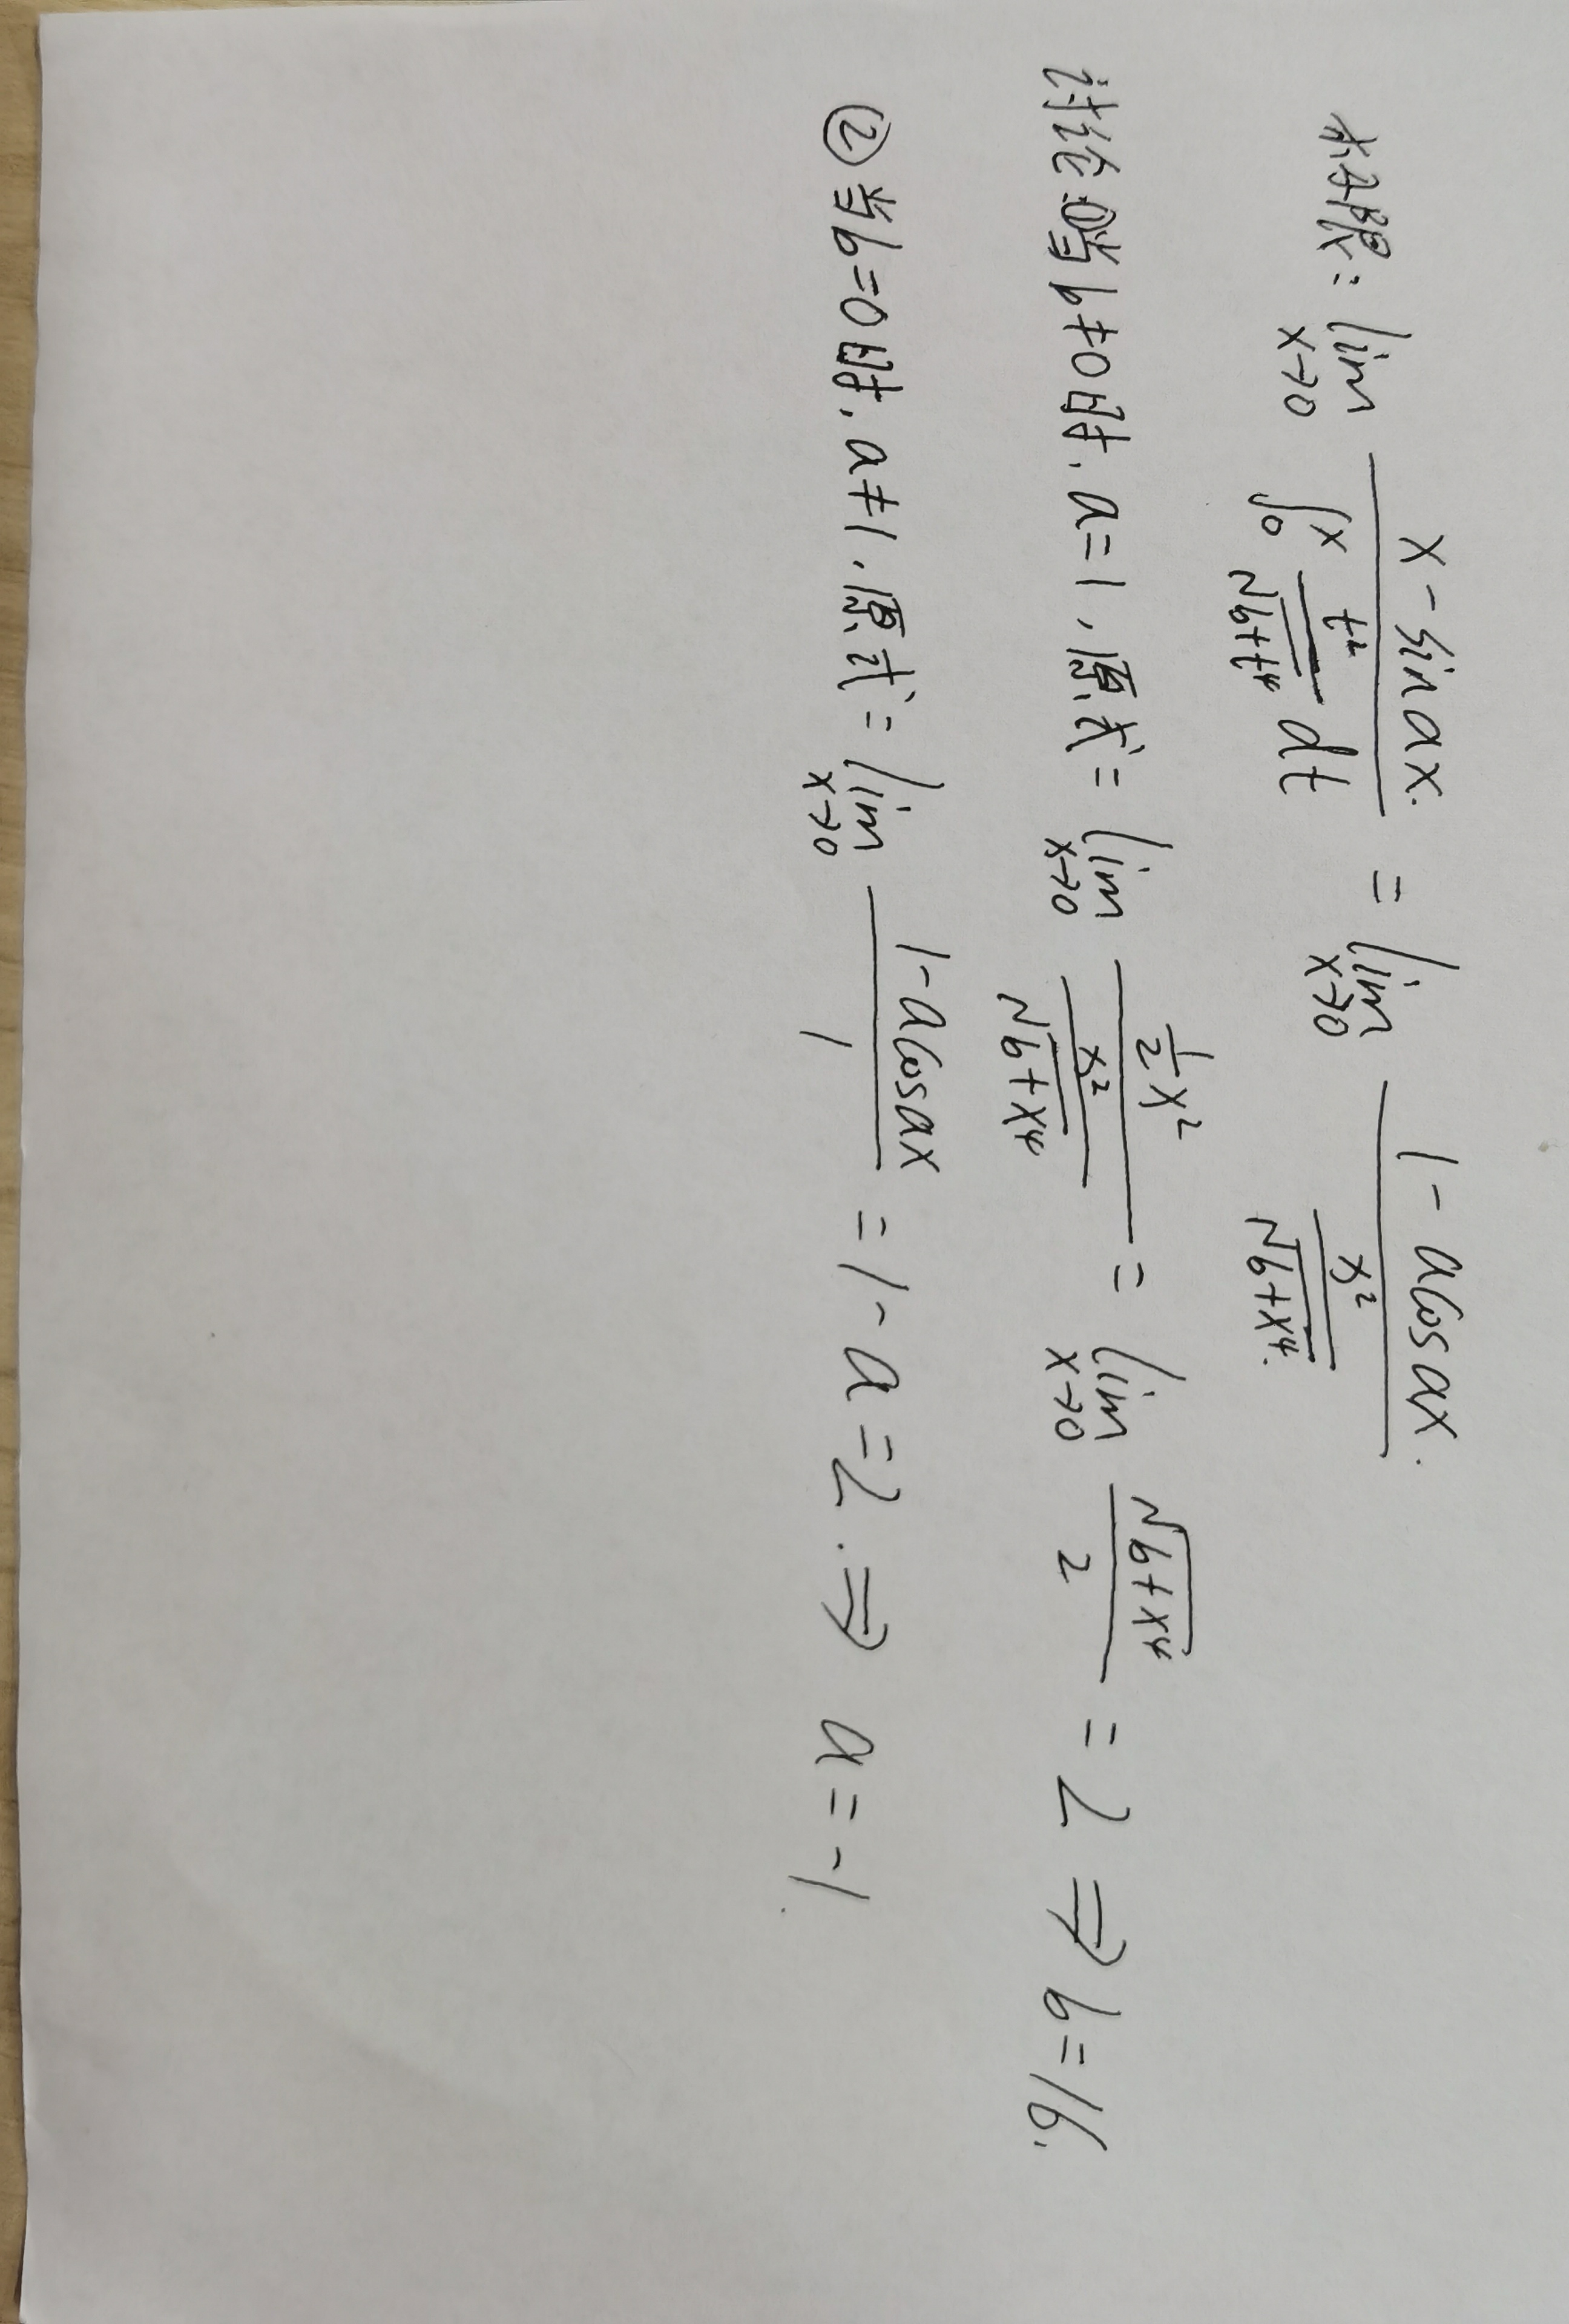 求极限: lim x→0 (x - sin ax) / (∫₀ˣ t²/√(b+t⁴) dt) = lim x→0 (1 - a cos ax) / (x²/√(b+x⁴))
讨论①当b≠0时, a=1, 原式 = lim x→0 (½x²) / (x²/√(b+x⁴)) = lim x→0 √(b+x⁴) / 2 = 2 ⇒ b=16.
②当b=0时, a≠1, 原式 = lim x→0 (1 - a cos ax) / 1 = 1 - a = 2. ⇒ a = -1